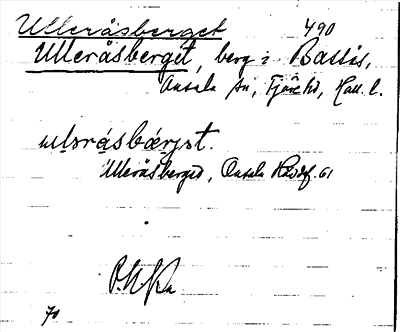 Ulleråsberget 490
Ulleråsberget, berg i Ballis,
Onsala sn, Fjäre hd, Hall. l.
ulɘråsbærjɘt.
Ulleråsberget, Onsala 61
70